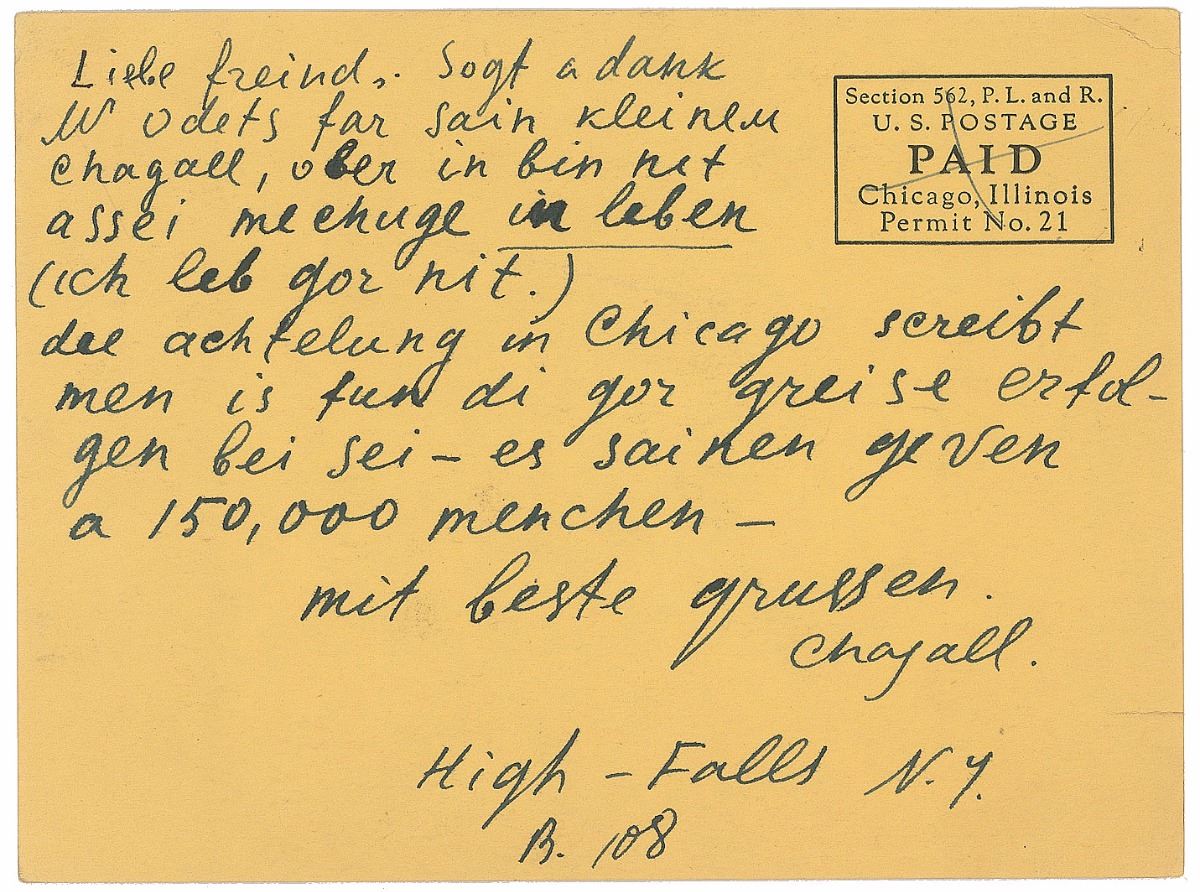 Liebe freind. Sogt a dank
M' odets far sain kleinem
chagall, ober in bin nit
assei mechuge in leben
(ich leb gor nit.)
die achtelung in Chicago screibt
men is fun di gor greise erfol-
gen bei sei – es sainen geven
a 150,000 menchen –
mit beste grussen.
Chagall.
High – Falls N.Y.
B. 108
Section 562, P. L. and R.
U. S. POSTAGE
PAID
Chicago, Illinois
Permit No. 21